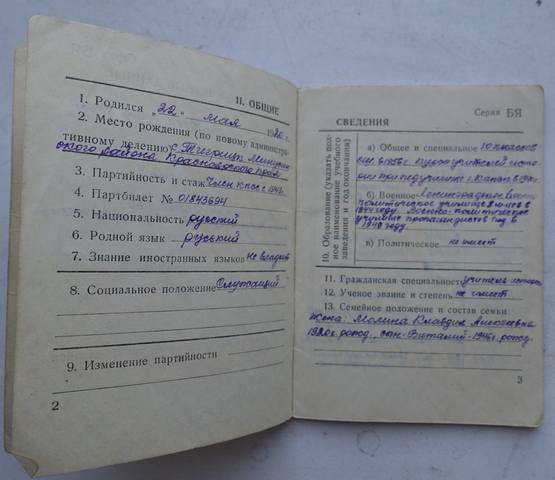 II. ОБЩИЕ
1. Родился „22" мая 1920 г.
2. Место рождения (по новому администра-
тивному делению) с. Тигрицк Минусин-
ского района Красноярского края
3. Партийность и стаж Член КПСС с 194
4. Партбилет № 01843694
5. Национальность русский
6. Родной язык русский
7. Знание иностранных языков не владеет
8. Социальное положение Служащий
9. Изменение партийности
2
Серия БЯ
СВЕДЕНИЯ
10. Образование (указать пол-
ное наименование учебного
заведения и год окончания)
а) Общее и специальное 10 классов
в 1936 г. Курсы учителей исто-
рии при педучилище г. Канск в
б) Военное Ленинградское Военно
политическое училище в июле
1944 году. Военно-политическое
училище пропагандистов в
1948 году.
в) Политическое не имеет
11. Гражданская специальность учитель истории
12. Ученое звание и степень не имеет
13. Семейное положение и состав семьи
жена: Молина Клавдия
1920 г. рожд., сын-Виталий-1946 г. рожд.
3